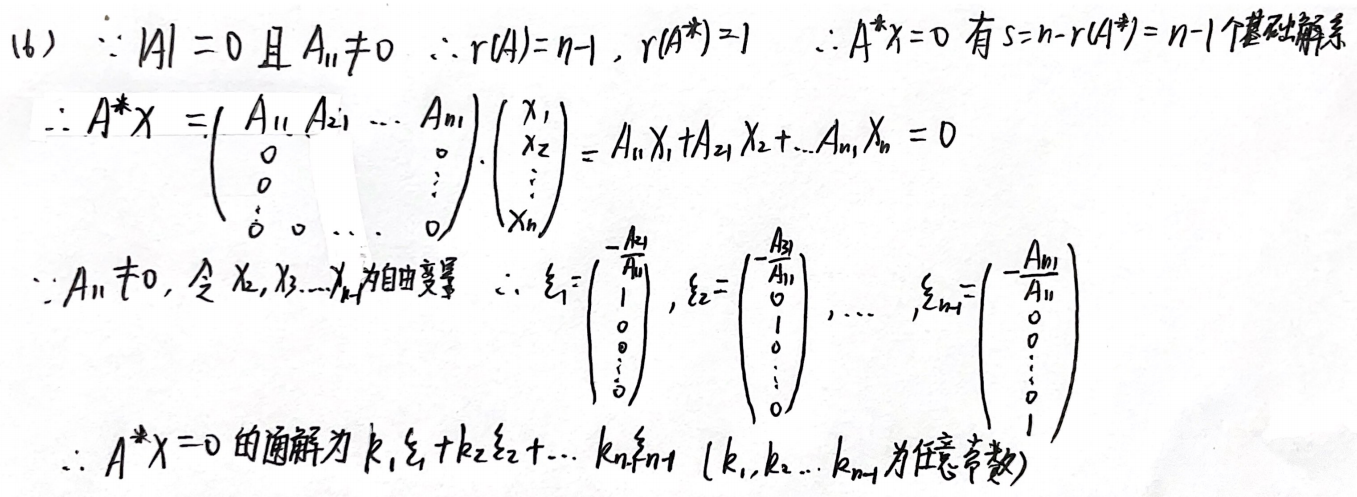 (6) ∵ |A| = 0 且 A₁₁ ≠ 0 ∴ r(A) = n-1 , r(A*) = 1 ∴ A*x = 0 有 s = n - r(A*) = n-1 个基础解系
∴ A*X = ( A₁₁ A₂₁ ⋯ Aₙ₁ ; 0 0 ; 0 ⋮ ; ⋮ ; 0 0 ⋯ 0 ) · ( x₁ ; x₂ ; ⋮ ; xₙ ) = A₁₁X₁ + A₂₁X₂ + ⋯Aₙ₁Xₙ = 0
∵ A₁₁ ≠ 0, 令 x₂, x₃ ⋯ xₙ₋₁ 为自由变量 ∴ ξ₁ = ( -A₂₁/A₁₁ ; 1 ; 0 ; 0 ; ⋮ ; 0 ) , ξ₂ = ( -A₃₁/A₁₁ ; 0 ; 1 ; 0 ; ⋮ ; 0 ) , ⋯ , ξₙ₋₁ = ( -Aₙ₁/A₁₁ ; 0 ; 0 ; ⋮ ; 0 ; 1 )
∴ A*X = 0 的通解为 k₁ξ₁ + k₂ξ₂ + ⋯ kₙ₋₁ξₙ₋₁ (k₁, k₂ ⋯ kₙ₋₁ 为任意常数)